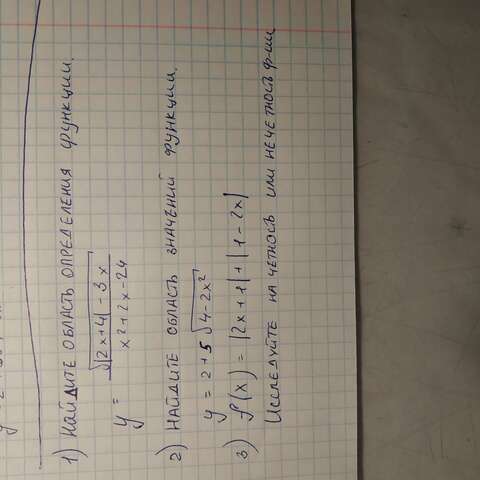 1) НАЙДИТЕ ОБЛАСТЬ ОПРЕДЕЛЕНИЯ ФУНКЦИИ.
y = √(|2x+4| - 3x) / (x² + 2x - 24)
2) НАЙДИТЕ ОБЛАСТЬ ЗНАЧЕНИЙ ФУНКЦИИ.
y = 2 + 5 √(4 - 2x²)
3) f(x) = |2x + 1| + |1 - 2x|
ИССЛЕДУЙТЕ НА ЧЕТНОСТЬ ИЛИ НЕЧЕТНОСТЬ Ф-ИИ